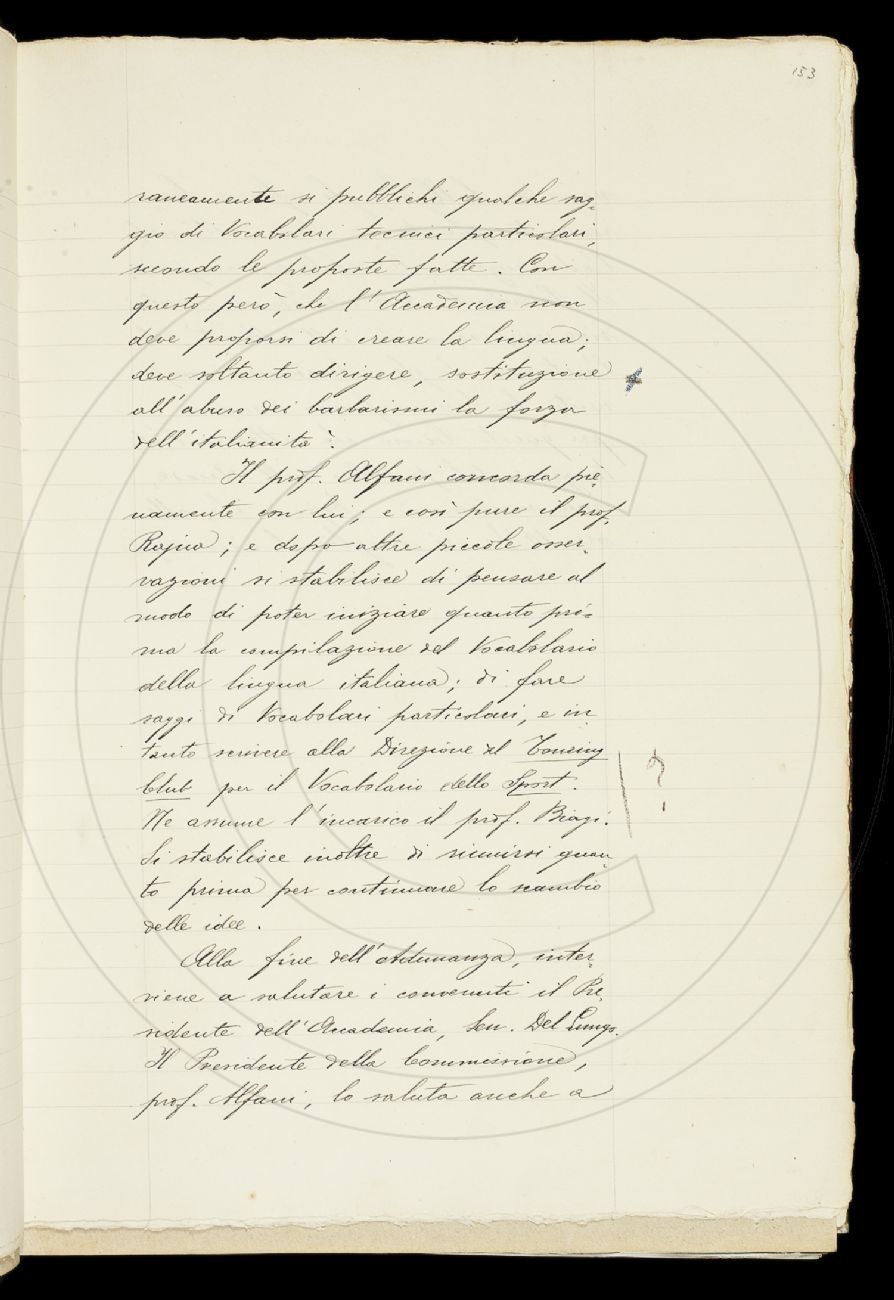 153
raneamente si pubblichi qualche sag-
gio di Vocabolari tecnici particolari,
secondo le proposte fatte. Con
questo però, che l'Accademia non
deve proporsi di creare la lingua;
deve soltanto dirigere, sostituzione
all'abuso dei barbarismi la forza
dell'italianità.
Il prof. Alfani concorda pie-
namente con lui; e così pure il prof.
Rajna; e dopo altre piccole osser-
vazioni si stabilisce di pensare al
modo di poter iniziare quanto pri-
ma la compilazione del Vocabolario
della lingua italiana; di fare
saggi di Vocabolari particolari, e in-
tanto scrivere alla Direzione del Touring
Club per il Vocabolario dello Sport.
?
Ne assume l'incarico il prof. Biagi.
Si stabilisce inoltre di riunirsi quan-
to prima per continuare lo scambio
delle idee.
Alla fine dell'Adunanza, inter-
viene a salutare i convenuti il Pre-
sidente dell'Accademia, Sen. Del Lungo.
Il Presidente della Commissione,
prof. Alfani, lo saluta anche a